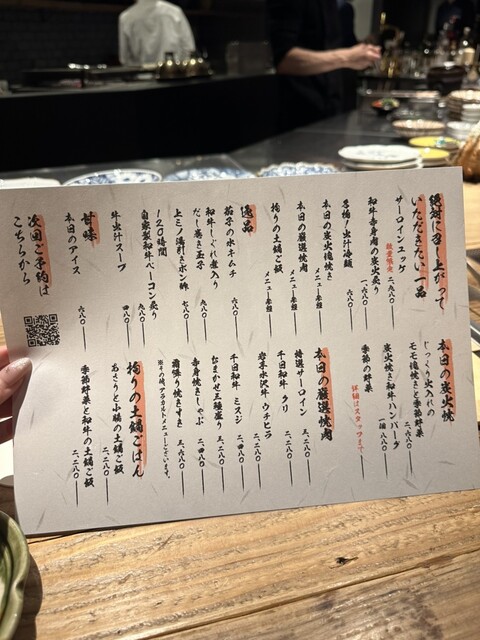 絶対に召し上がって
いただきたい一品
サーロインユッケ
数量限定 二、九八〇
和牛赤身肉の炭火炙り
一、六八〇
名物！出汁冷麺
一、六八〇
本日の炭火焼き
メニュー参照
本日の厳選焼肉
メニュー参照
拘りの土鍋ご飯
メニュー参照
逸品
茄子の水キムチ
六八〇
和牛しぐれ煮入り
だし巻き玉子
九八〇
上ミノ湯引きポン酢
七八〇
120時間
自家製和牛ベーコン炙り
九八〇
牛出汁スープ
四八〇
甘味
本日のアイス
六八〇
次回ご予約は
こちらから
本日の炭火焼
じっくり火入れの
モモ塊焼きと季節野菜
二、六八〇
炭火焼き和牛ハンバーグ
一個 八八〇
季節の野菜
詳細はスタッフまで
本日の厳選焼肉
特選サーロイン
三、二八〇
千日和牛 クリ
二、二八〇
岩手水沢牛 ウチヒラ
二、二八〇
千日和牛 ミスジ
二、四八〇
おまかせ三種盛り
三、二八〇
赤身焼きしゃぶ
二、四八〇
霜降り焼きすき
三、六八〇
※その他、アラカルトメニューもございます。
拘りの土鍋ごはん
あさりと小腸の土鍋ご飯
二、二八〇
季節野菜と和牛の土鍋ご飯
二、二八〇